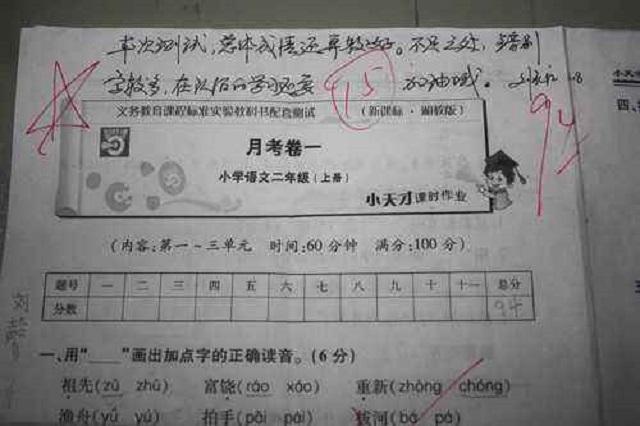 本次测试，总体成绩还算较好。不足之处，错别
字较多，在以后的学习还要 加油哦。
15
94
义务教育课程标准实验教科书配套测试 （新课标·湘教版）
月考卷一
小学语文二年级（上册）
小天才课时作业
（内容：第一～三单元 时间：60分钟 满分：100分）
题号 一 二 三 四 五 六 七 八 九 十 十一 总分
分数 94
一、用“____”画出加点字的正确读音。（6分）
祖先（zǔ zhǔ） 富饶（ráo xáo） 重新（zhòng chóng）
渔舟（yǔ yú） 拍手（pāi pái） 拔河（bá pá）
小天
四、